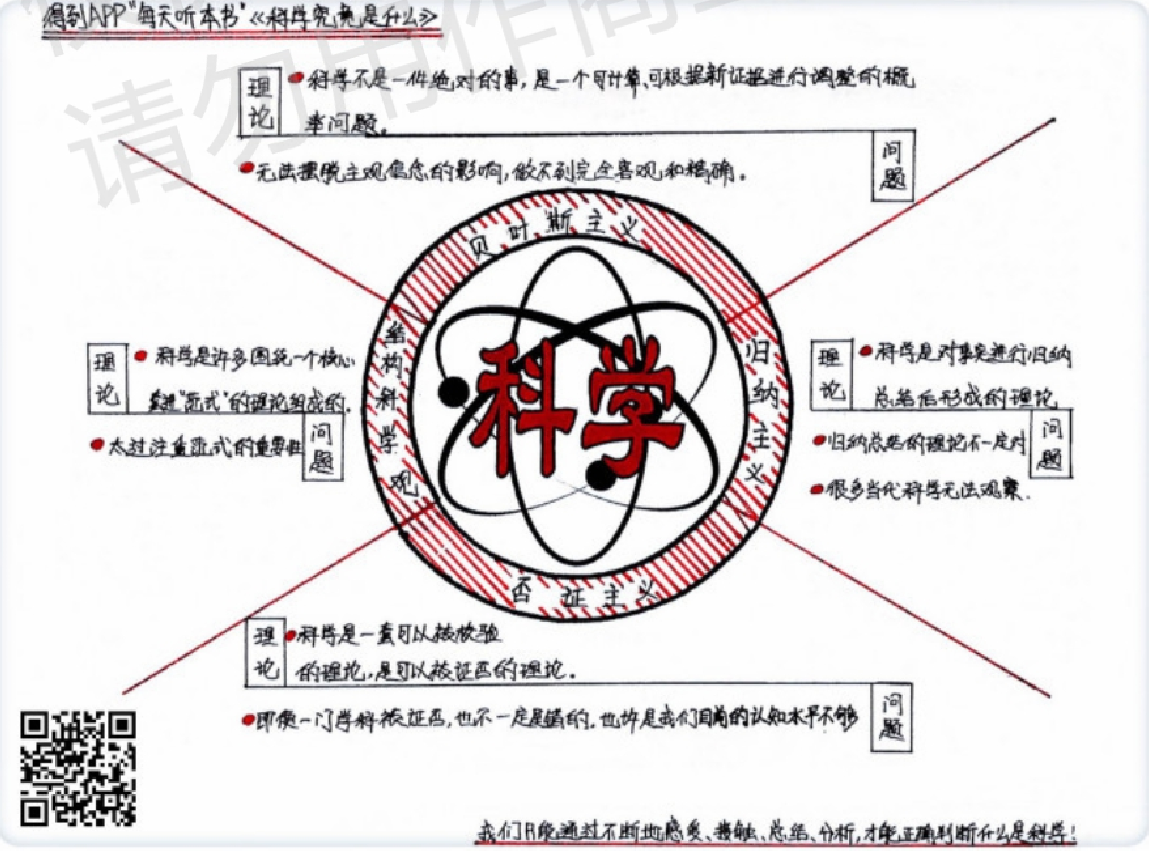 得到APP"每天听本书"《科学究竟是什么》
请勿用作商
理论
科学不是一件绝对的事，是一个可计算、可根据新证据进行调整的概
率问题。
问题
无法摆脱主观信念的影响，做不到完全客观和精确。
贝叶斯主义
结构科学观
归纳主义
否证主义
科学
理论
科学是许多围绕一个核心
"范式"的理论组成的.
太过注重范式的重要性
问题
理论
科学是对事实进行归纳
总结后形成的理论
归纳总结的理论不一定对
问题
很多当代科学无法观察.
理论
科学是一套可以被检验
的理论，是可以被证否的理论。
即使一门学科被证否，也不一定是错的.也许是我们目前的认知水平不够
问题
我们只能通过不断地感受、接触、总结、分析，才能正确判断什么是科学！